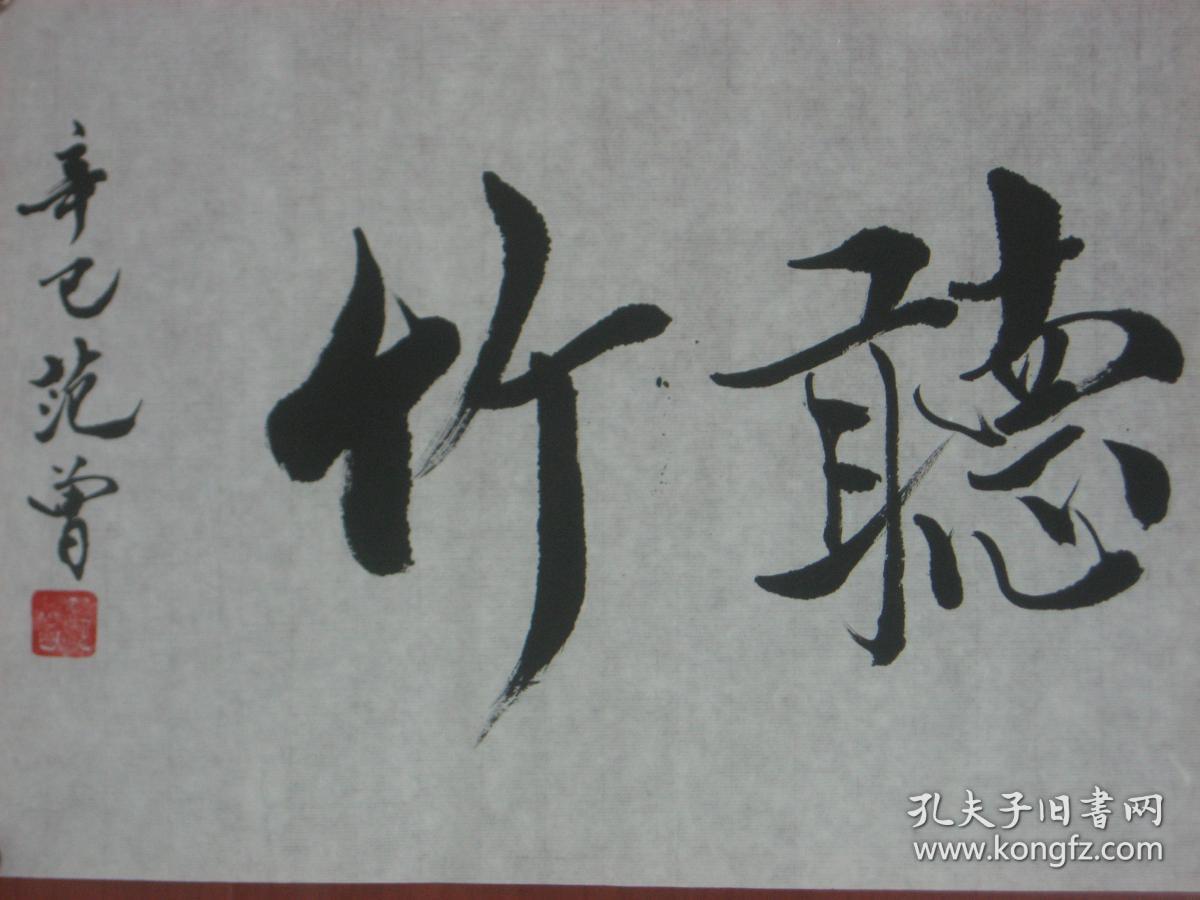 聽竹
辛巳范曾
孔夫子旧書网
www.kongfz.com